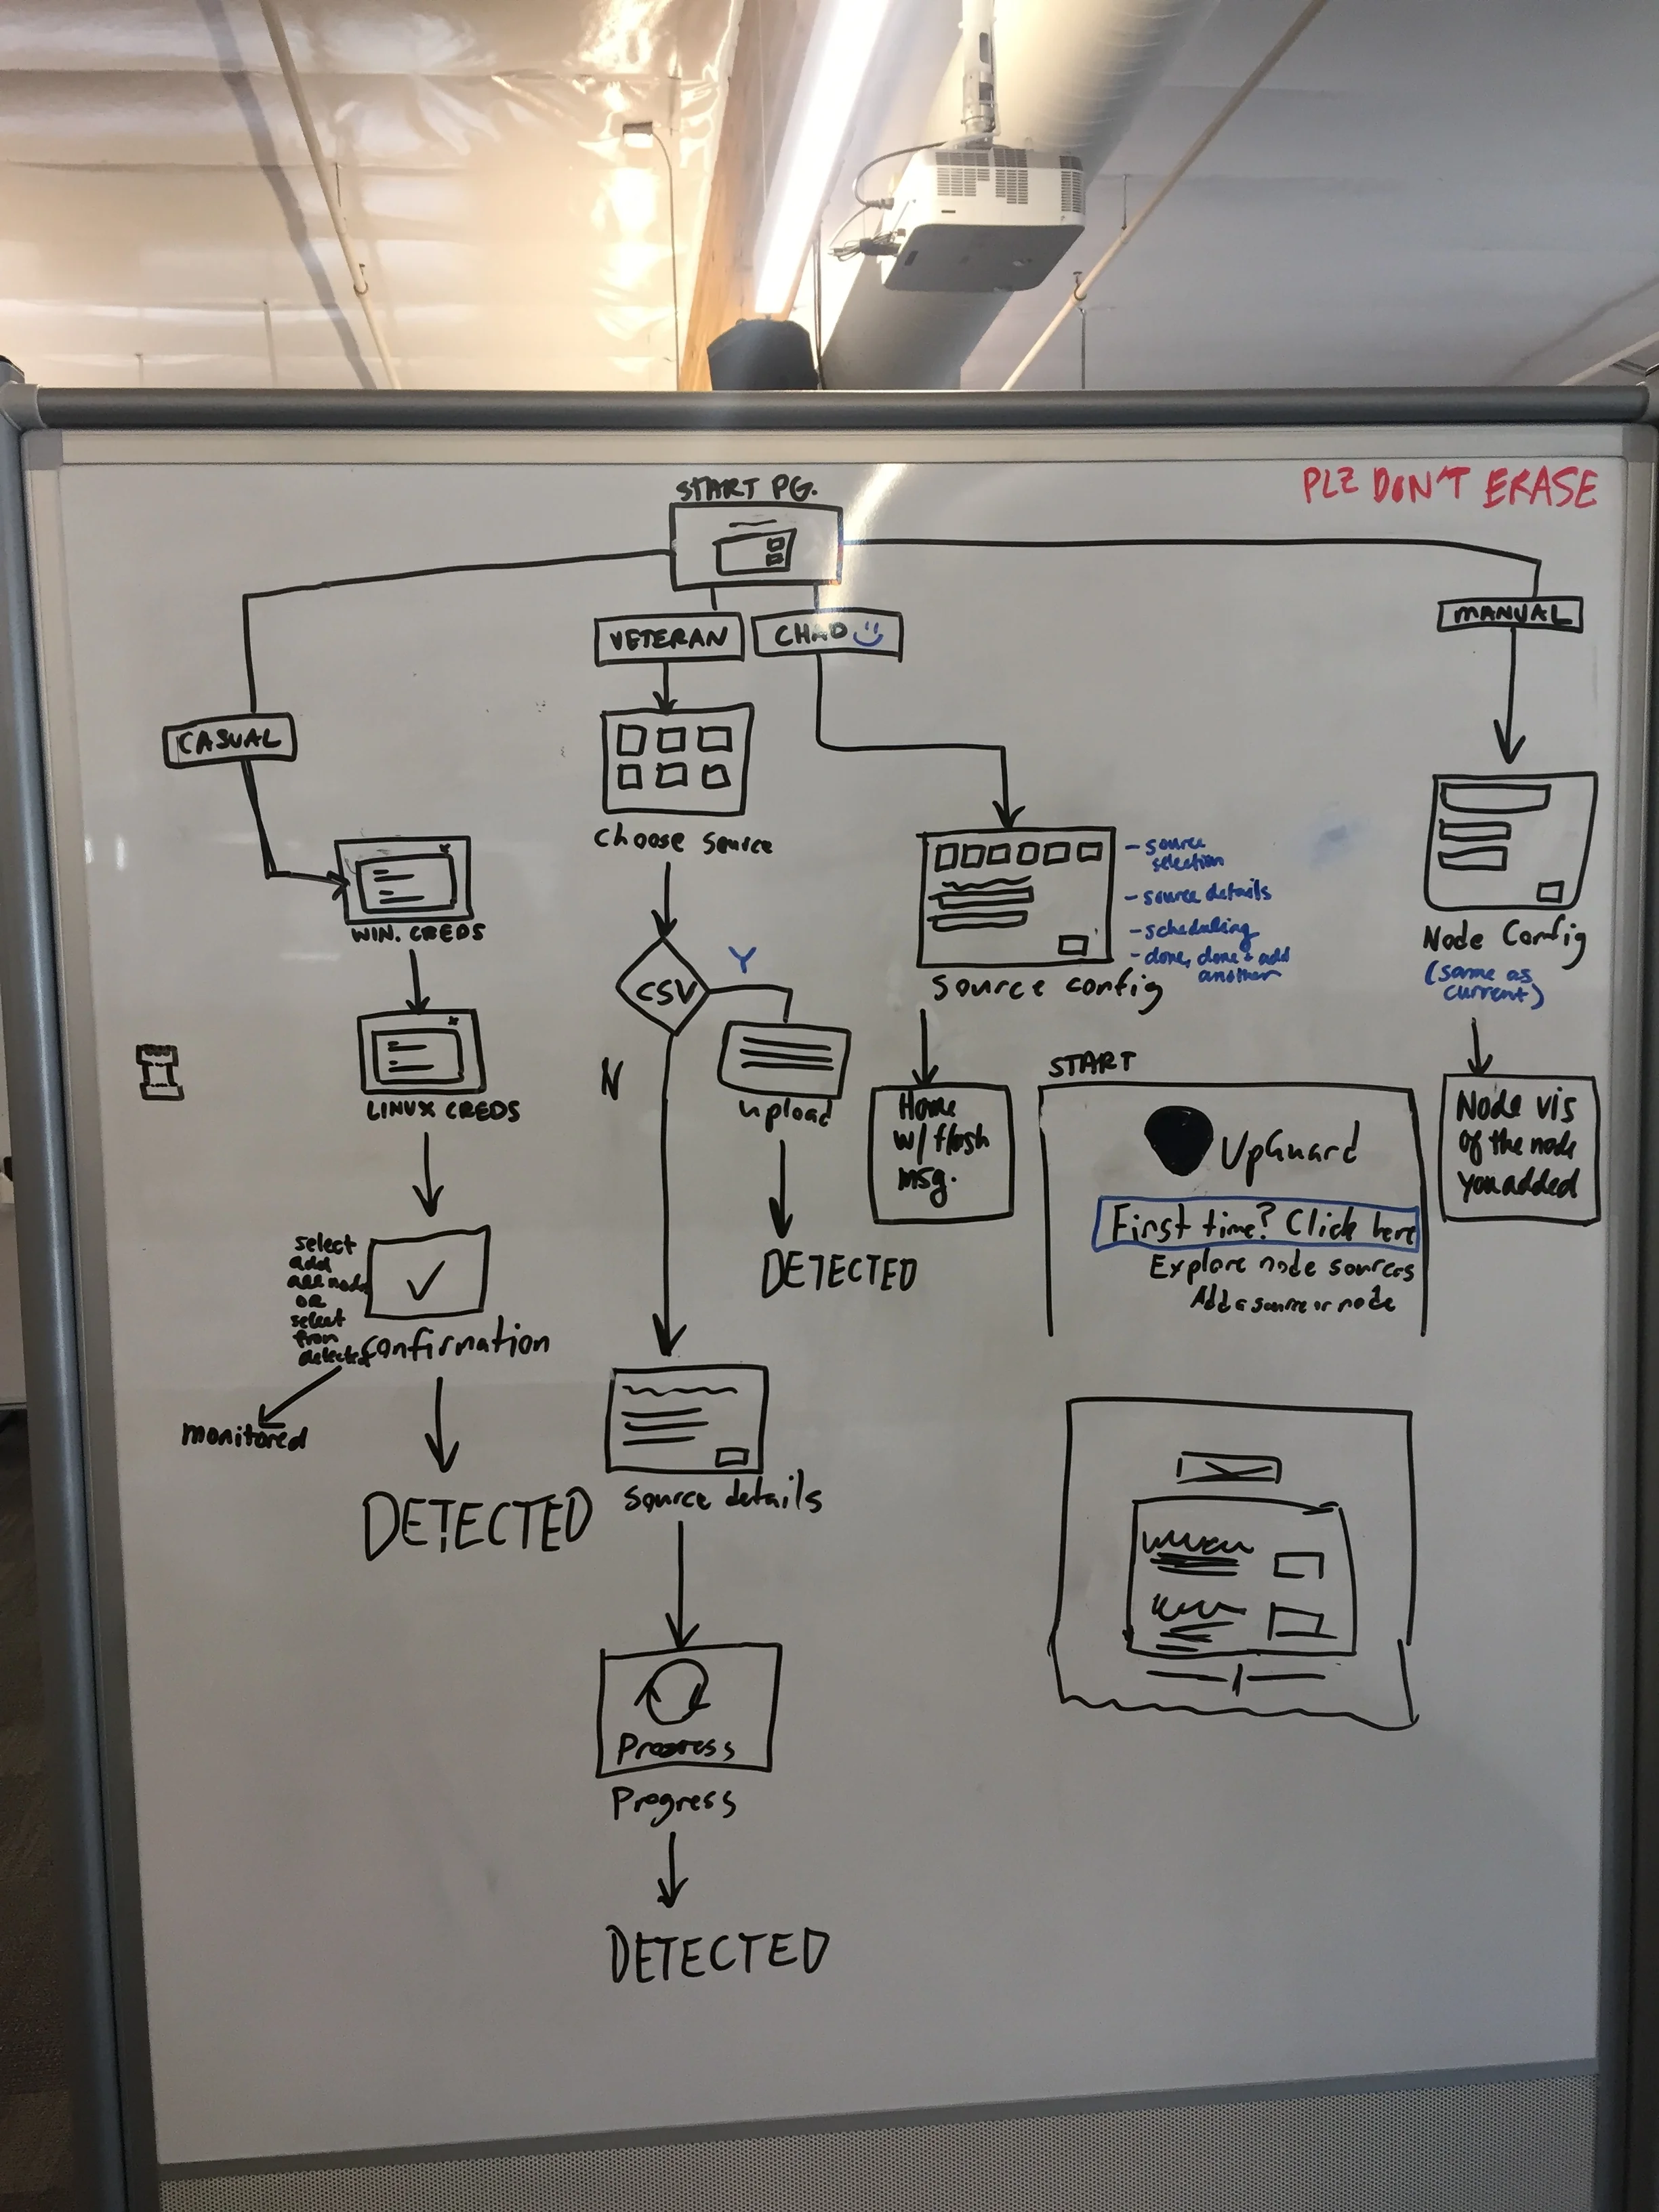 START PG.
PLZ DON'T ERASE
VETERAN
CHAD
MANUAL
CASUAL
choose source
WIN. CREDS
CSV
Y
N
upload
DETECTED
- source
selection
- source details
- scheduling
- done, done & add
another
Source config
Node Config
(same as
current)
LINUX CREDS
Home
w/ flash
msg.
START
UpGuard
First time? Click here
Explore node sources
Add a source or node
Node vis
of the node
you added
select
add
all nodes
OR
select
from
detected
confirmation
monitored
DETECTED
source details
Progress
Progress
DETECTED